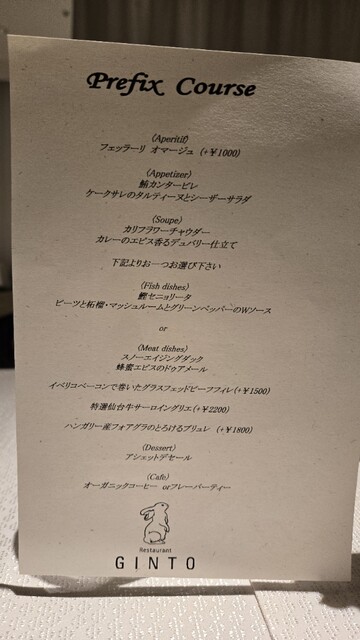 Prefix Course
(Aperitif)
フェッラーリ オマージュ (+￥1000)
(Appetizer)
鮪カンタービレ
ケークサレのタルティーヌとシーザーサラダ
(Soupe)
カリフラワーチャウダー
カレーのエピス香るデュバリー仕立て
下記よりお一つお選び下さい
(Fish dishes)
鰹セニョリータ
ビーツと柘榴・マッシュルームとグリーンペッパーのWソース
or
(Meat dishes)
スノーエイジングダック
蜂蜜エピスのドゥアメール
イベリコベーコンで巻いたグラスフェッドビーフフィレ(+￥1500)
特選仙台牛サーロイングリエ(+￥2200)
ハンガリー産フォアグラのとろけるブリュレ (+￥1800)
(Dessert)
アシェットデセール
(Cafe)
オーガニックコーヒー orフレーバーティー
Restaurant
GINTO